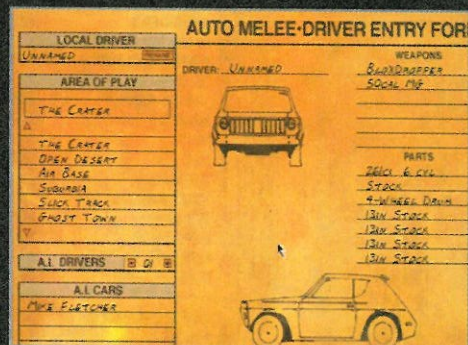 LOCAL DRIVER
UNNAMED
AREA OF PLAY
THE CRATER
THE CRATER
OPEN DESERT
AIR BASE
SUBURBIA
SLICK TRACK
GHOST TOWN
A.I. DRIVERS 01
A.I. CARS
MIKE FLETCHER
AUTO MELEE·DRIVER ENTRY FOR
DRIVER: UNNAMED
WEAPONS
BLOXDROPPER
50CAL MG
PARTS
261CI 6 CYL
STOCK
4-WHEEL DRUM
13IN STOCK
13IN STOCK
13IN STOCK
13IN STOCK